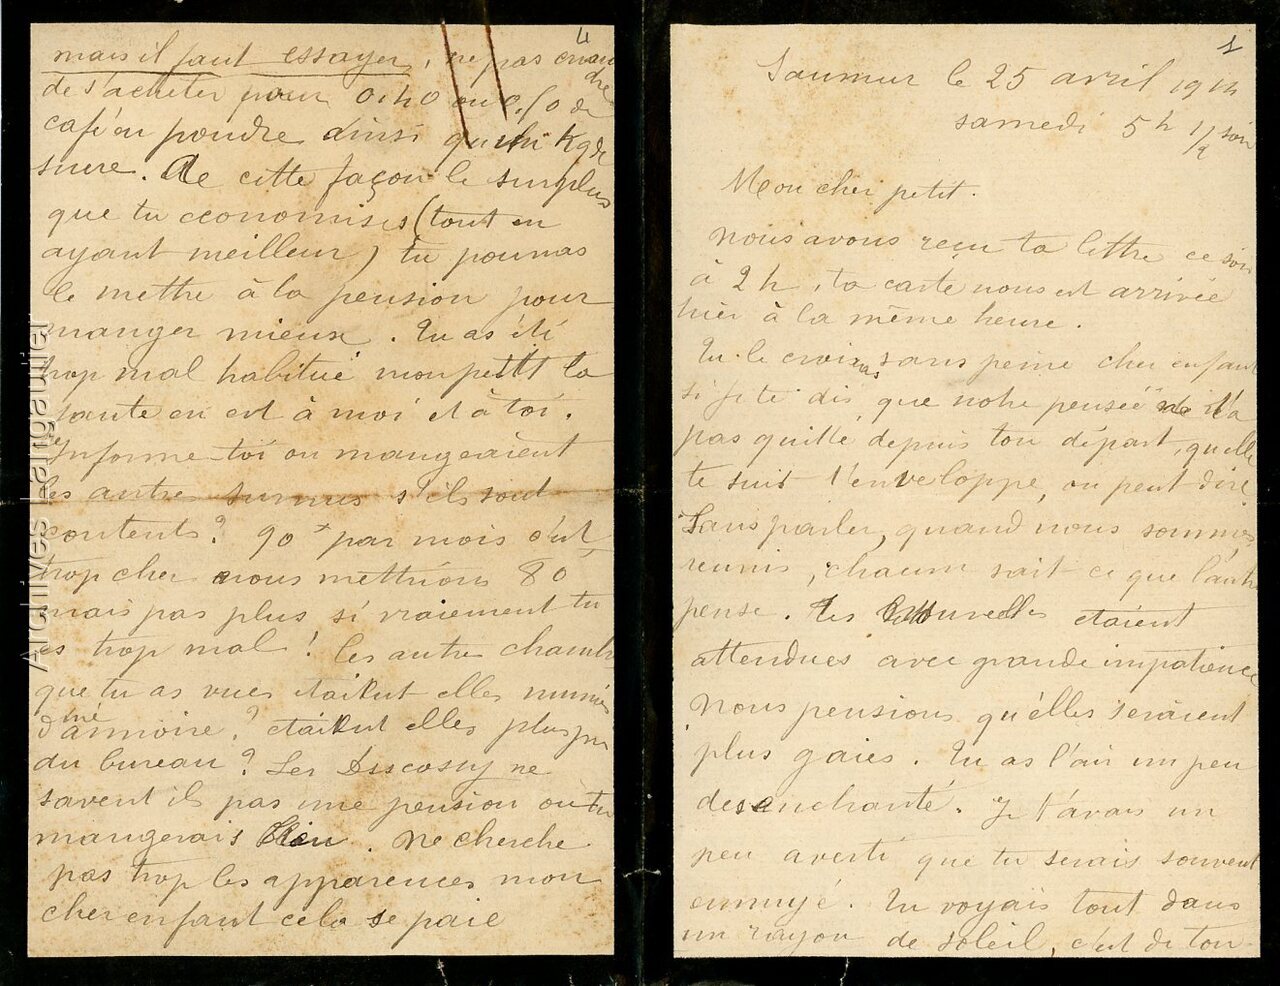 4
mais il faut essayer, ne pas craindre
de s'acheter pour 0,40 ou 0,50 de
café en poudre ainsi qu'un kg de
sucre. De cette façon le surplus
que tu économises (tout en
ayant meilleur) tu pourras
le mettre à la pension pour
manger mieux. Tu as été
trop mal habitué mon petit la
faute en est à moi et à toi.
Informe-toi ou mangeaient
les autres surnus s'ils sont
contents? 90 par mois c'est
trop cher nous mettrions 80
mais pas plus si vraiement tu
es trop mal! les autres chambres
que tu as vues étaient elles munies
d'une armoire? étaient elles plus près
du bureau? Les ne
savent ils pas une pension ou tu
mangerais bien. Ne cherche
pas trop les apparences mon
cher enfant cela se paie
1
Saumur le 25 avril 1914
samedi 5h 1/2 soir
Mon cher petit.
Nous avons reçu ta lettre ce soir
à 2h, ta carte nous est arrivée
hier à la même heure.
Tu le croiras sans peine cher enfant
si je te dis que notre pensée ne t'a
pas quitté depuis ton départ, qu'elle
te suit t'enveloppe, on peut dire
Sans parler, quand nous sommes
reunis, chacun sait ce que l'autre
pense. Tes nouvelles etaient
attendues avec grande impatience
Nous pensions qu'elles seraient
plus gaies. Tu as l'air un peu
desenchanté. Je t'avais un
peu averti que tu serais souvent
ennuyé. Tu voyais tout dans
un rayon de soleil, c'est de ton
Archives Langautier